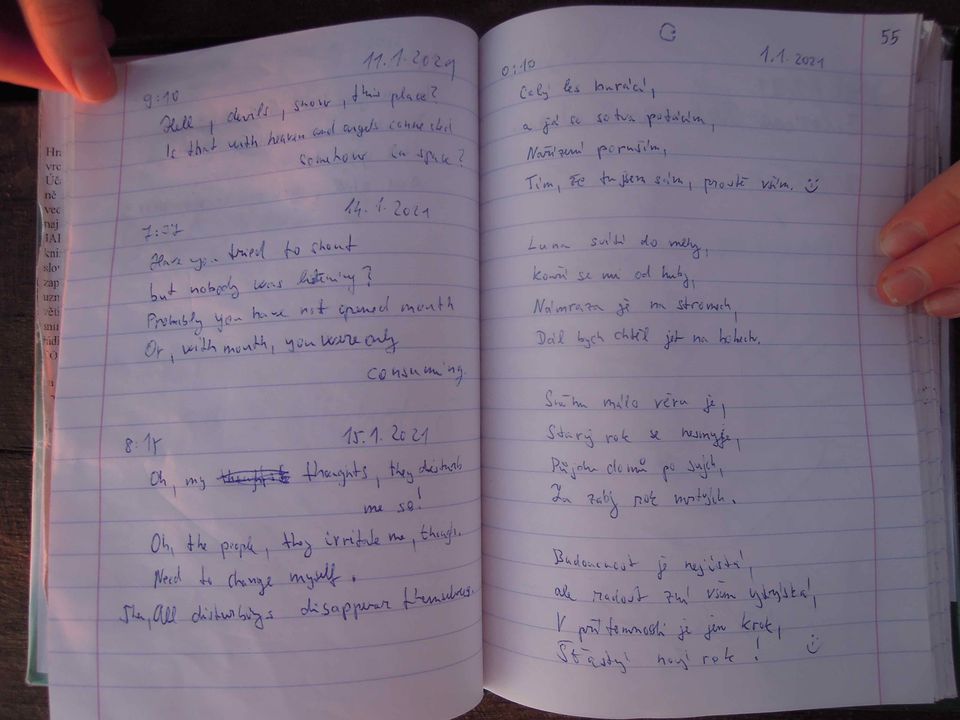 11.1.2021
9:10
Hell, devils, snow, this place?
Is that with heaven and angels connected
somehow in space?
14.1.2021
7:57
Have you tried to shout
but nobody was listening?
Probably you have not opened mouth
Or, with mouth, you were only
consuming.
8:15
15.1.2021
Oh, my thoughts, they disturb
me so!
Oh, the people, they irritate me, though.
Need to change myself.
Then, All disturbings disappear themselves.
55
1.1.2021
0:10
Celý les burácí,
a já se sotva potácím,
Nařízení poruším,
Tím, že tu jsem sám, prostě vím. :)
Luna svítí do mlhy,
Kouří se mi od huby,
Námraza je na stromech,
Dál bych chtěl jet na
Sněhu málo věru je,
Starý rok se nesmyje,
Půjdu domů po svých,
Za zády rok mrtvých.
Budoucnost je nejistá,
ale radost zní všem
V přítomnosti je jen krok,
Šťastný nový rok! :)
Hra
vrc
Úč
ně
ved
naj
JAI
kni
slo
záp
uzn
věti